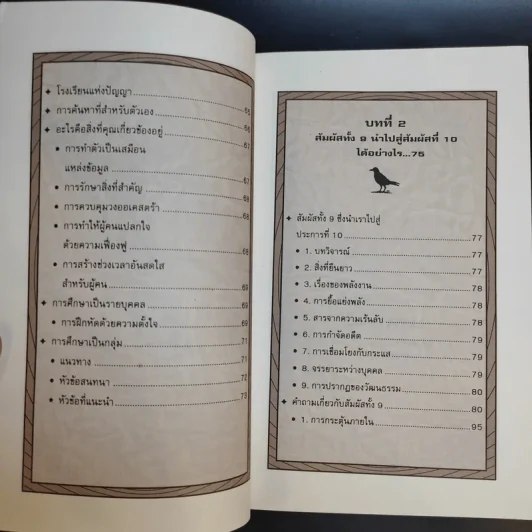 ✦ โรงเรียนแห่งปัญญา
✦ การค้นหาที่สำหรับตัวเอง 65
✦ อะไรคือสิ่งที่คุณเกี่ยวข้องอยู่ 67
• การทำตัวเป็นเสมือน
แหล่งข้อมูล 67
• การรักษาสิ่งที่สำคัญ 68
• การควบคุมวงออเคสตร้า 68
• การทำให้ผู้คนแปลกใจ
ด้วยความเฟื่องฟู 68
• การสร้างช่วงเวลาอันสดใส
สำหรับผู้คน 69
✦ การศึกษาเป็นรายบุคคล 69
• การฝึกหัดด้วยความตั้งใจ 69
✦ การศึกษาเป็นกลุ่ม 71
• แนวทาง 71
• หัวข้อสนทนา 72
• หัวข้อที่แนะนำ 73
บทที่ 2
สัมผัสทั้ง 9 นำไปสู่สัมผัสที่ 10
ได้อย่างไร...75
✦ สัมผัสทั้ง 9 ซึ่งนำเราไปสู่
ประการที่ 10 77
• 1. บทวิจารณ์ 77
• 2. สิ่งที่ยืนยาว 77
• 3. เรื่องของพลังงาน 78
• 4. การยื้อแย่งพลัง 78
• 5. สารจากความเร้นลับ 78
• 6. การกำจัดอดีต 79
• 7. การเชื่อมโยงกับกระแส 79
• 8. จรรยาระหว่างบุคคล 79
• 9. การปรากฏของวัฒนธรรม 80
✦ คำถามเกี่ยวกับสัมผัสทั้ง 9 80
• 1. การกระตุ้นภายใน 95